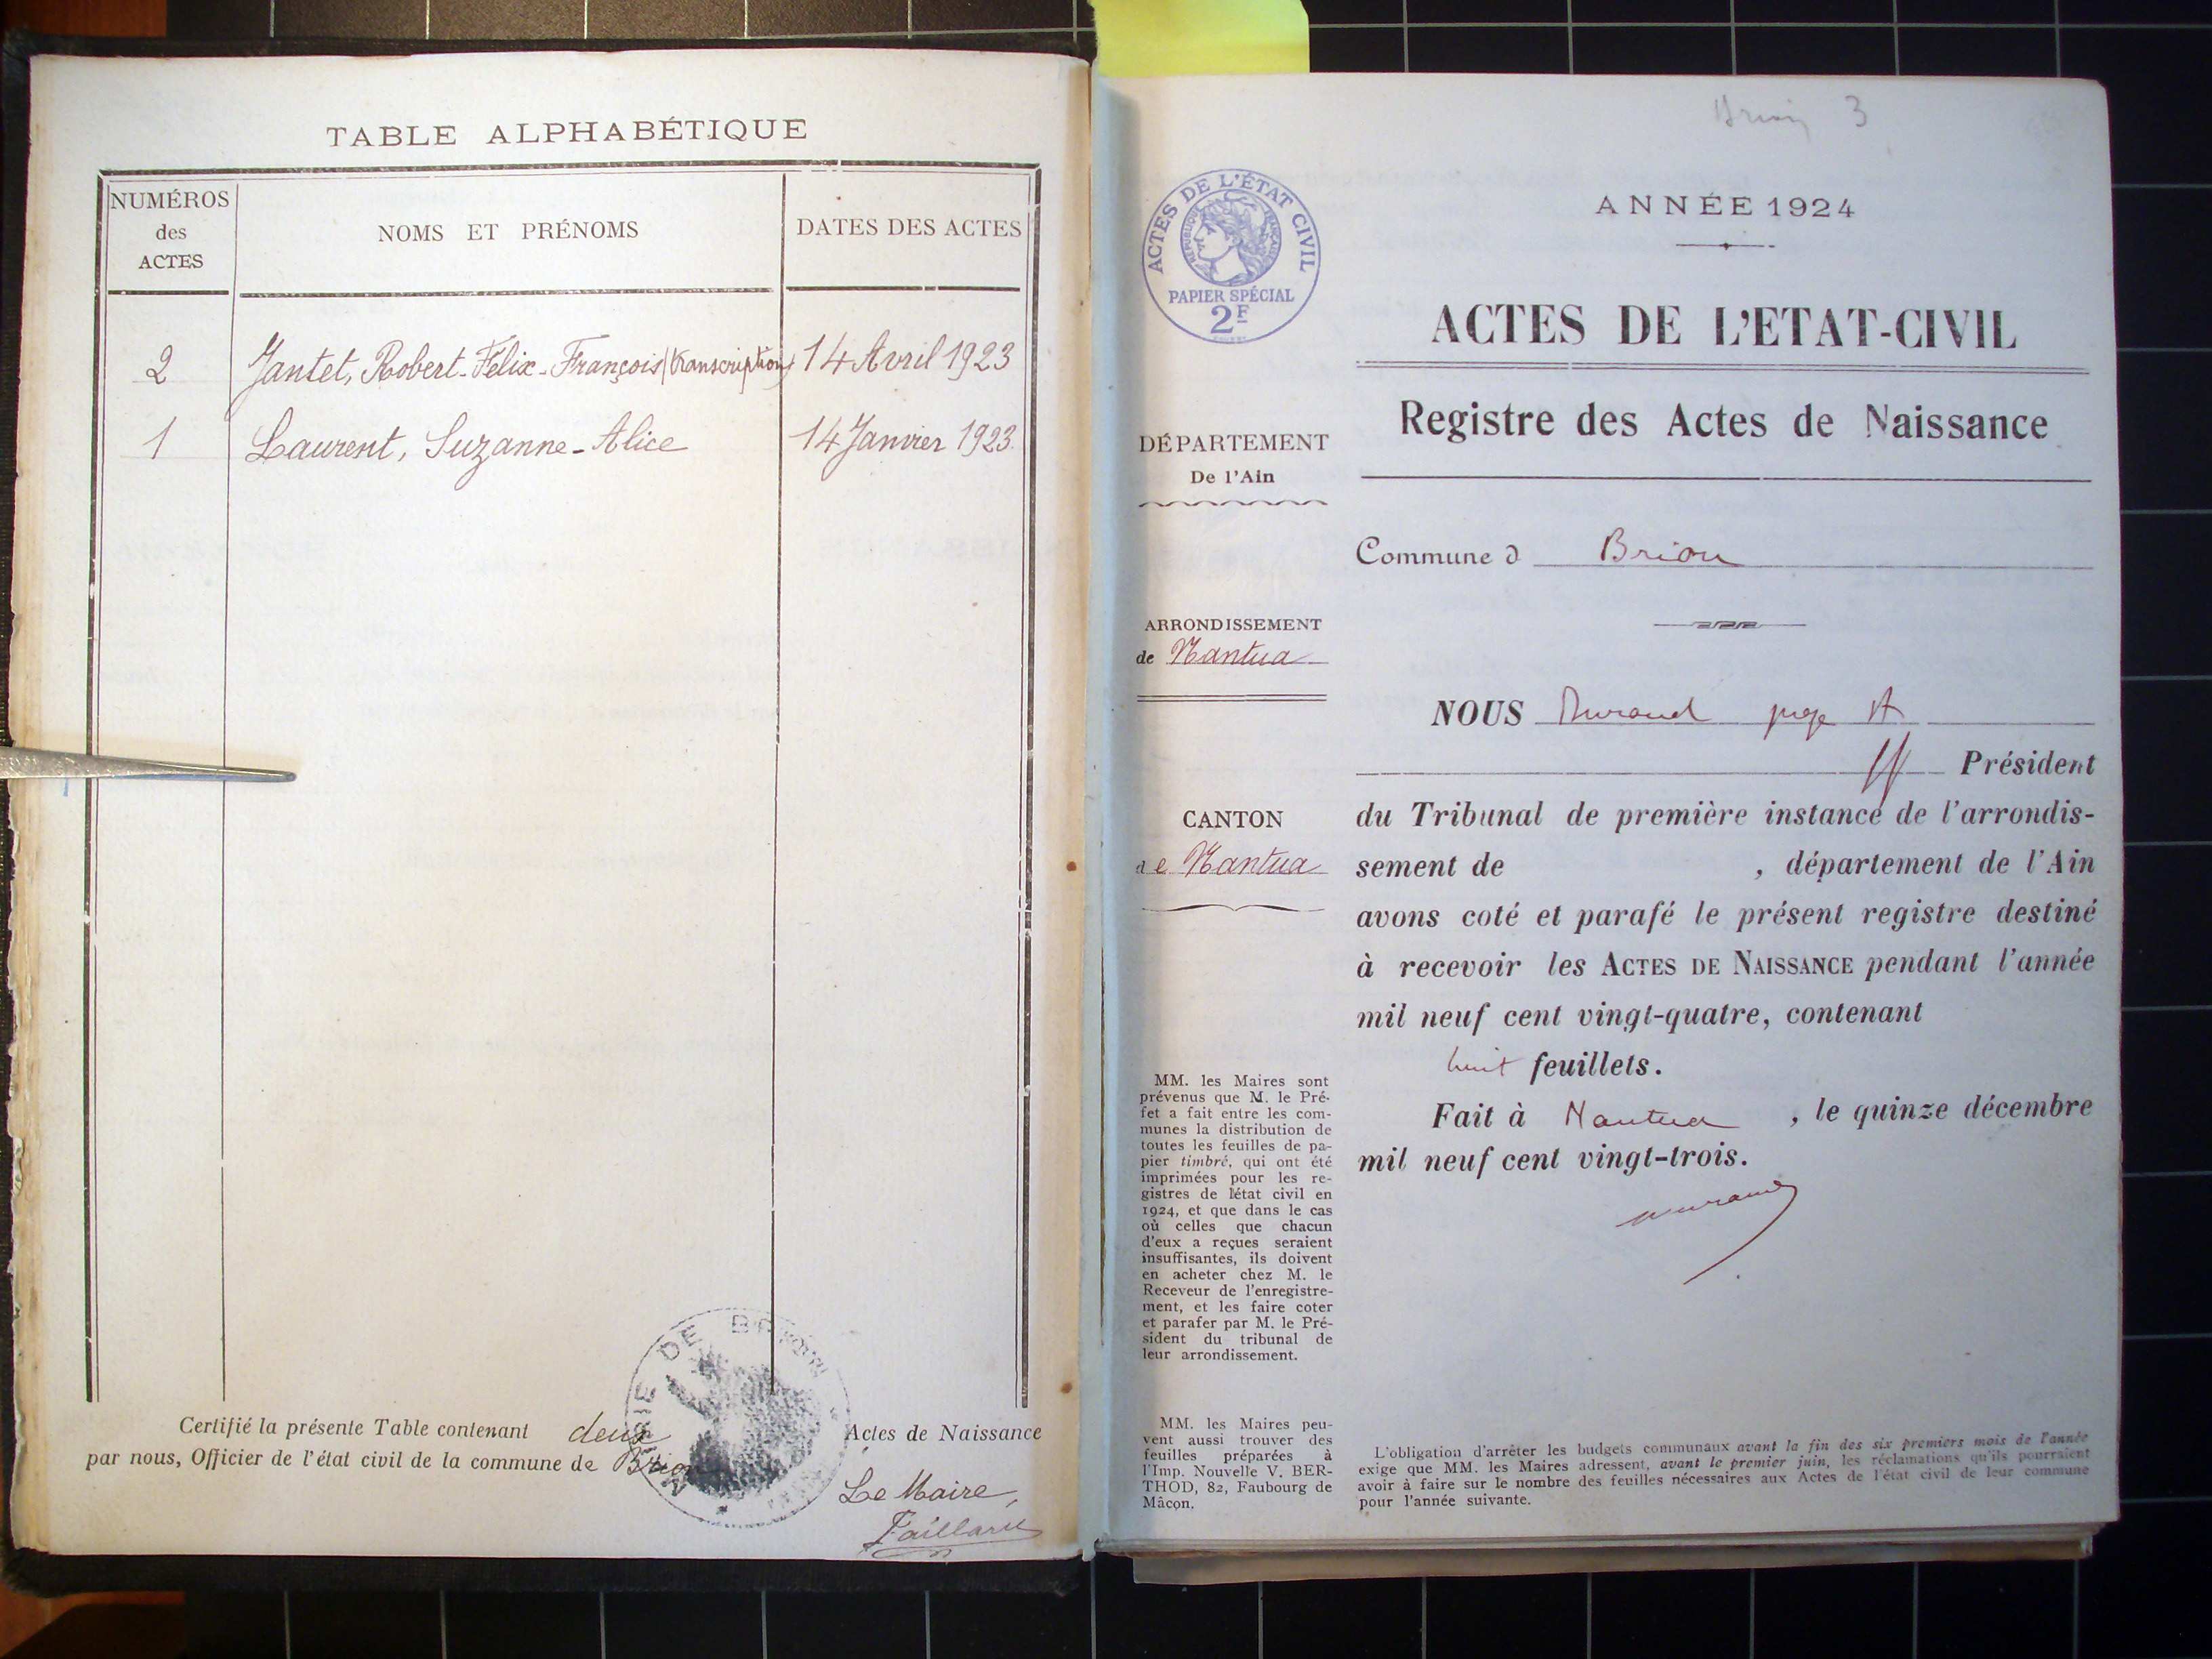 TABLE ALPHABÉTIQUE
NUMÉROS
des
ACTES
NOMS ET PRÉNOMS
DATES DES ACTES
2 Jantet, Robert-Félix-François (transcription) 14 Avril 1923
1 Laurent, Suzanne-Alice 14 Janvier 1923
Certifié la présente Table contenant deux Actes de Naissance
par nous, Officier de l'état civil de la commune de Brion
MAIRIE DE BRION
Le Maire,
Brion 3
ACTES DE L'ÉTAT CIVIL
RÉPUBLIQUE FRANÇAISE
PAPIER SPÉCIAL
2F
DÉPARTEMENT
De l'Ain
ARRONDISSEMENT
de Nantua
CANTON
de Nantua
MM. les Maires sont
prévenus que M. le Pré-
fet a fait entre les com-
munes la distribution de
toutes les feuilles de pa-
pier timbré, qui ont été
imprimées pour les re-
gistres de l'état civil en
1924, et que dans le cas
où celles que chacun
d'eux a reçues seraient
insuffisantes, ils doivent
en acheter chez M. le
Receveur de l'enregistre-
ment, et les faire coter
et parafer par M. le Pré-
sident du tribunal de
leur arrondissement.
MM. les Maires peu-
vent aussi trouver des
feuilles préparées à
l'Imp. Nouvelle V. BER-
THOD, 82, Faubourg de
Mâcon.
ANNÉE 1924
ACTES DE L'ETAT-CIVIL
Registre des Actes de Naissance
Commune d Brion
NOUS Durand juge
Président
du Tribunal de première instance de l'arrondis-
sement de , département de l'Ain
avons coté et parafé le présent registre destiné
à recevoir les ACTES DE NAISSANCE pendant l'année
mil neuf cent vingt-quatre, contenant
huit feuillets.
Fait à Nantua , le quinze décembre
mil neuf cent vingt-trois.
Durand
L'obligation d'arrêter les budgets communaux avant la fin des six premiers mois de l'année
exige que MM. les Maires adressent, avant le premier juin, les réclamations qu'ils pourraient
avoir à faire sur le nombre des feuilles nécessaires aux Actes de l'état civil de leur commune
pour l'année suivante.